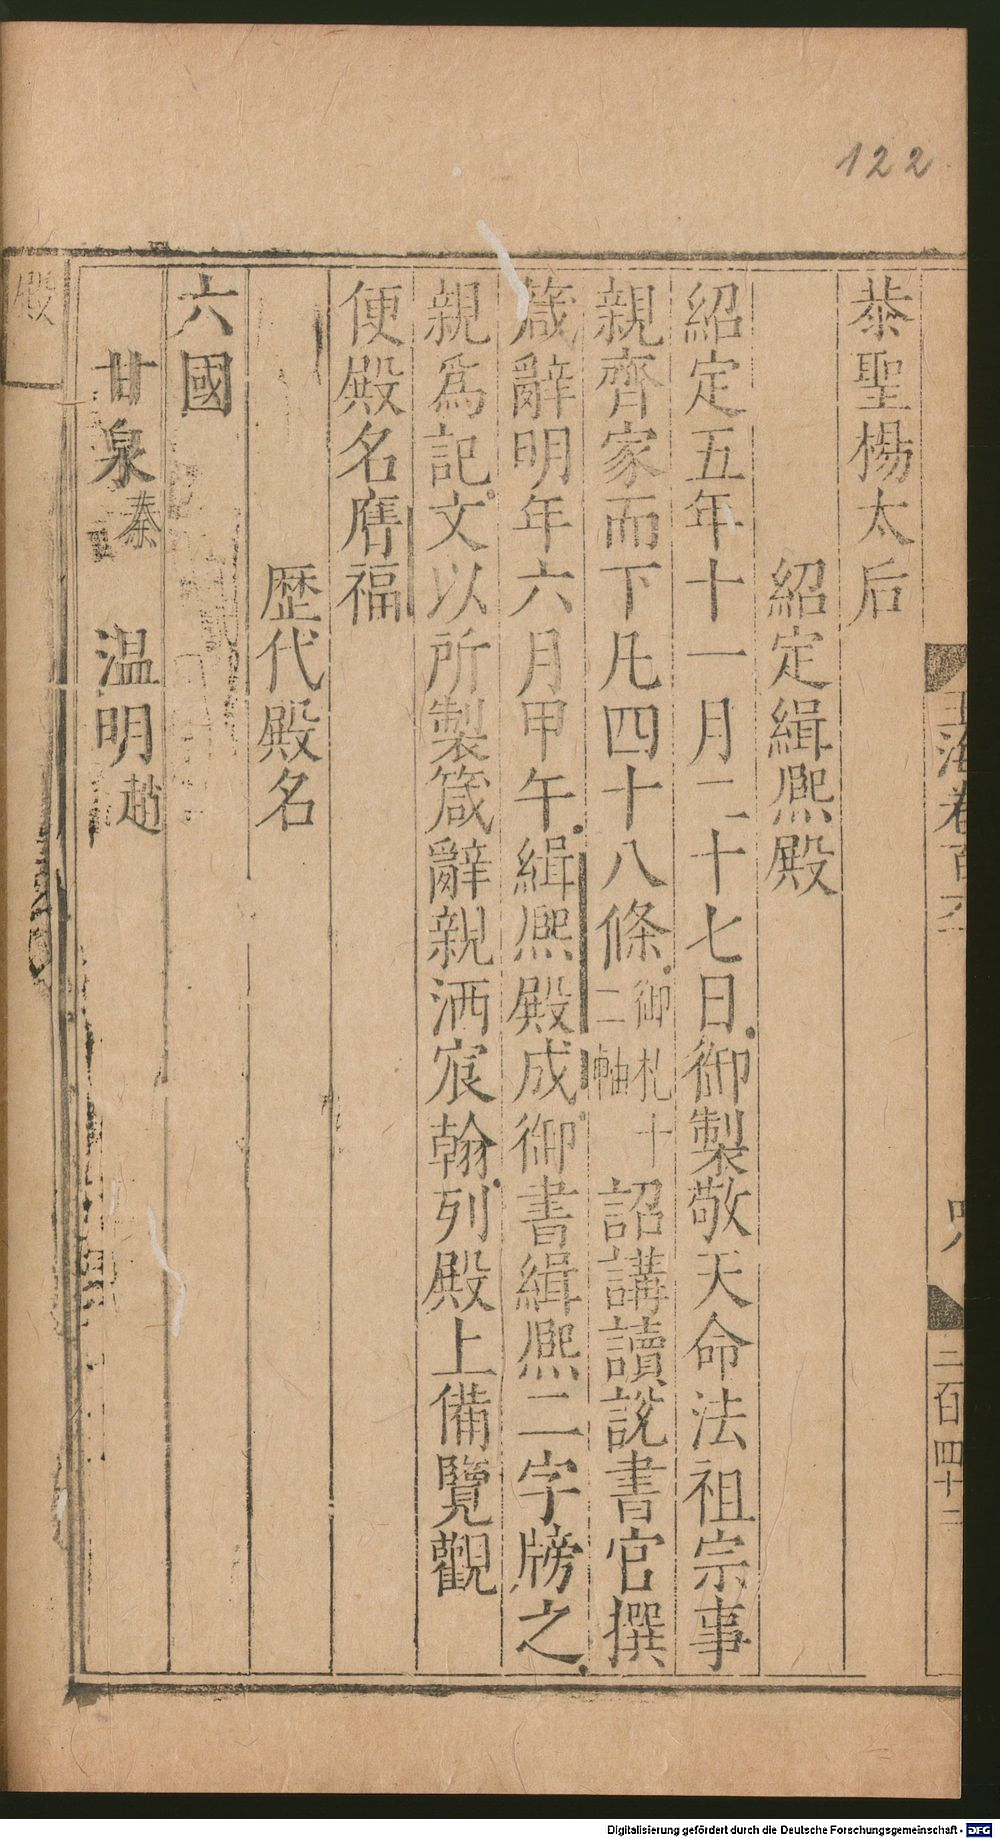 122
恭聖楊太后
紹定緝熈殿
紹定五年十一月二十七日御製敬天命法祖宗事
親齊家而下凡四十八條御札十二軸詔講讀說書官撰
箴辭明年六月甲午緝熈殿成御書緝熈二字牓之
親爲記文以所製箴辭親洒宸翰列殿上備覽觀
便殿名膺福
歷代殿名
六國
甘泉秦 温明趙
玉海卷百六
二百四十二
殿
Digitalisierung gefördert durch die Deutsche Forschungsgemeinschaft - DFG